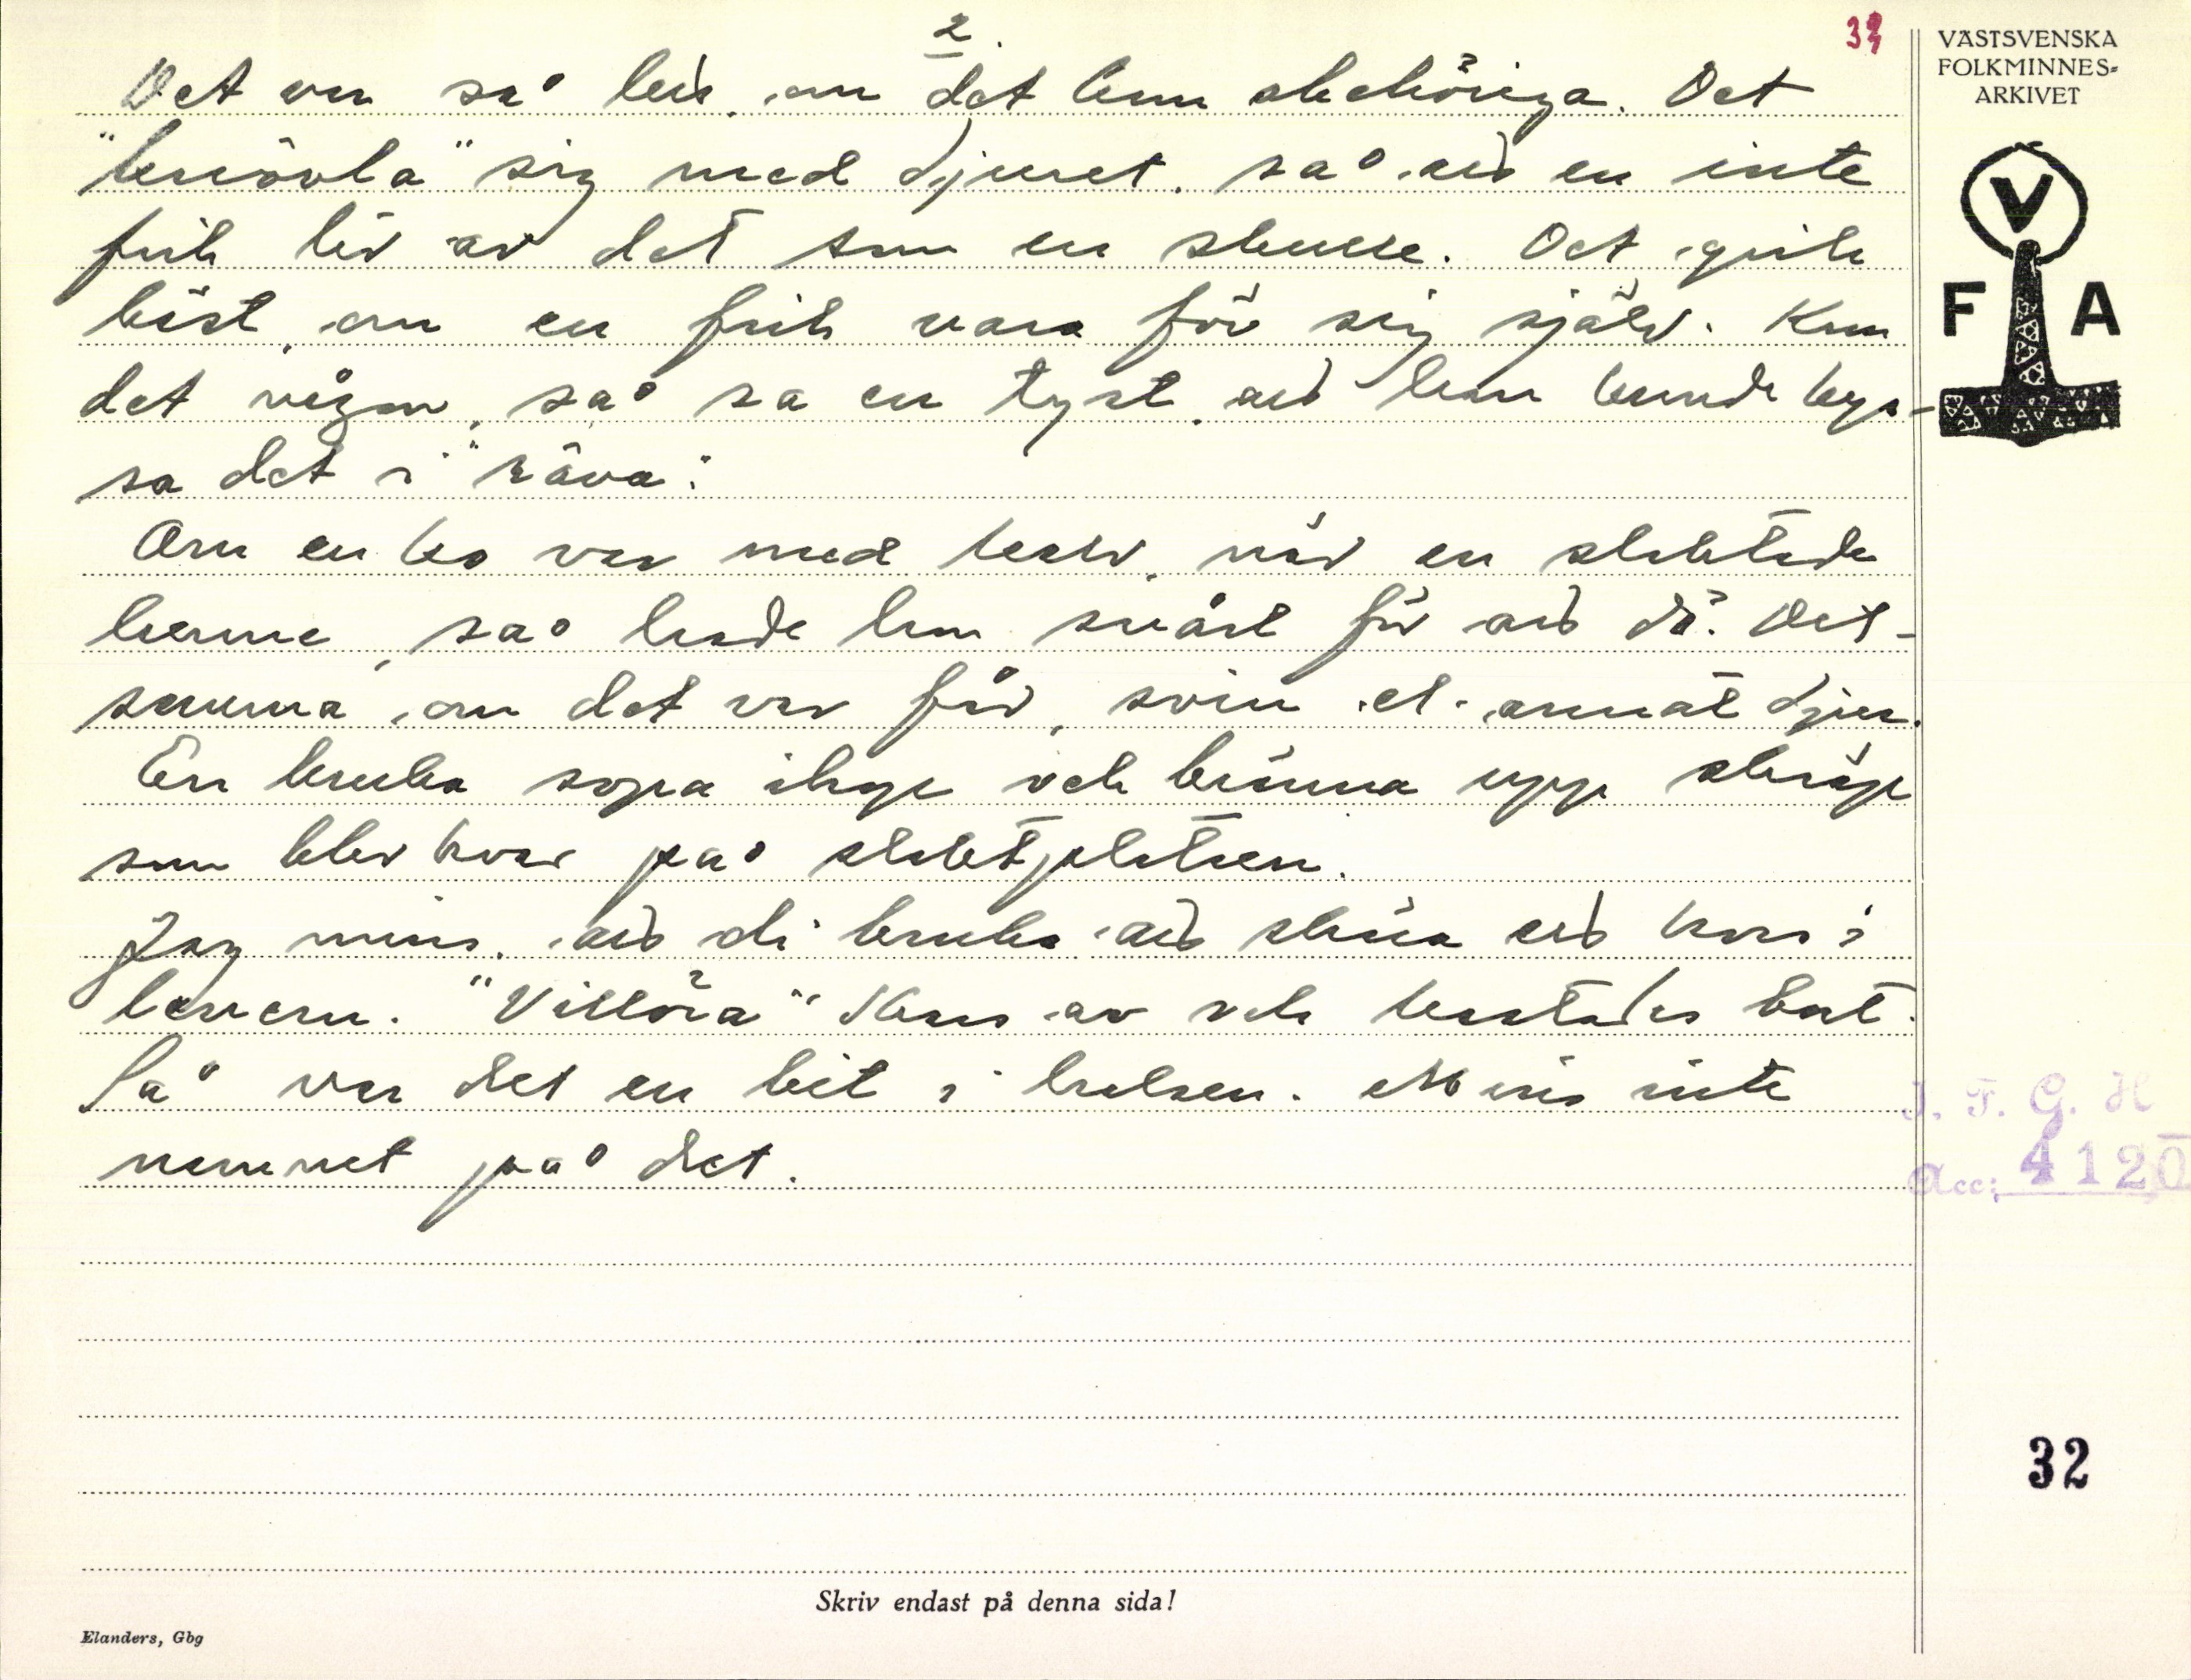 2.
39
Det var så led, om det kom obehöriga. Det
"krövla" sig med djuret, så att en inte
fick liv av det som en skulle. Det gick
bäst, om en fick vara för sig själv. Kom
det någon, så sa en tyst, att han kunde kys-
sa det i "räva".
Om en ko var med kalv, när en slaktade
henne, så hade hon svårt för att dö. Det-
samma, om det var får, svin el. annat djur.
En bruka sopa ihop och bränna upp skräp
som blev kvar på slaktplatsen.
Jag mins, att di bruka att skära ett kors i
levern. "Villöra" skars av och kastades bort.
Så var det en bit i halsen. Mins inte
namnet på det.
VÄSTSVENSKA
FOLKMINNES-
ARKIVET
V
F A
I. F. G. H
Acc: 4120
32
Skriv endast på denna sida!
Elanders, Gbg